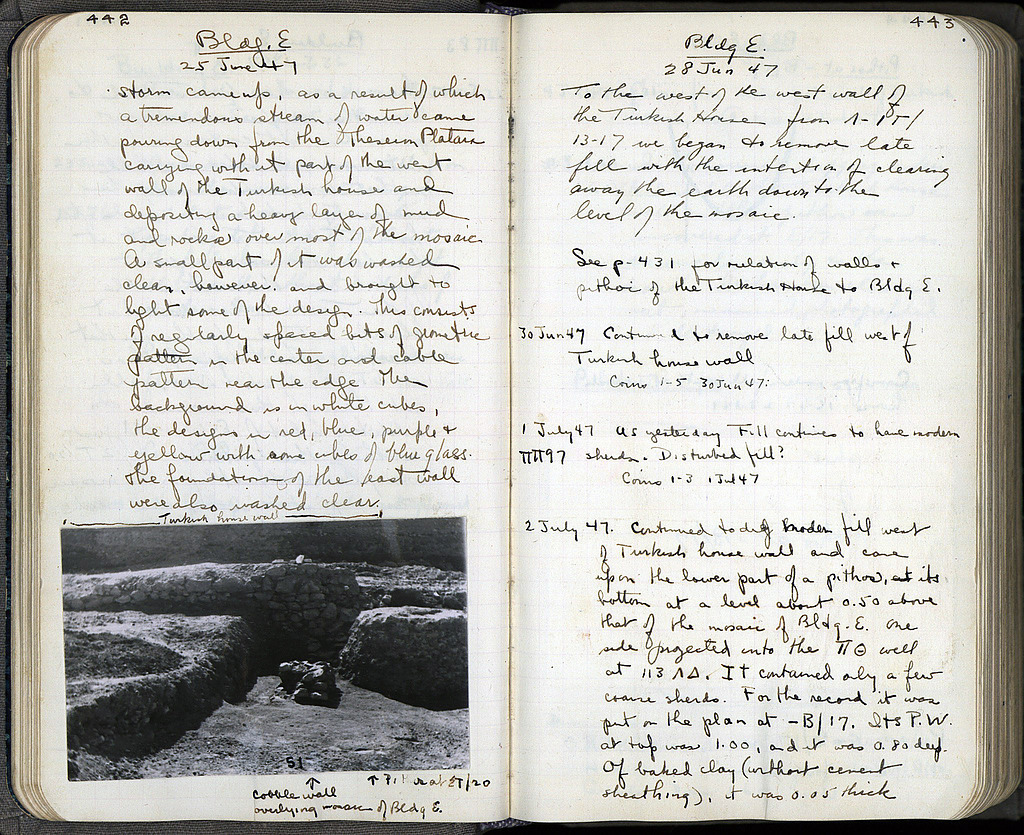 442
Bldg. E
25 June 47
storm came up, as a result of which
a tremendous stream of water came
pouring down from the Theseion Plataia
carrying with it part of the west
wall of the Turkish house and
depositing a heavy layer of mud
and rocks over most of the mosaic.
A small part of it was washed
clean, however, and brought to
light some of the design. This consists
of regularly spaced bits of geometric
pattern in the center and cable
pattern near the edge. The
background is in white cubes,
the designs in red, blue, purple +
yellow with some cubes of blue glass.
The foundations of the east wall
were also washed clear.
Turkish house wall
51
↑ ↑ Pithos at ΞΤ/20
cobble wall
overlying mosaic of Bldg E.
443
Bldg E.
28 Jun 47
To the west of the west wall of
the Turkish House from
13-17 we began to remove late
fill with the intention of clearing
away the earth down to the
level of the mosaic.
See p. 431 for relation of walls +
pithoi of the Turkish House to Bldg E.
30 Jun 47 Continued to remove late fill west of
Turkish house wall
Coins 1-5 30 Jun 47:
1 July 47 As yesterday Fill continues to have modern
ΠΠ97 sherds. Disturbed fill?
Coins 1-3 1 Jul 47
2 July 47. Continued to dig modern fill west
of Turkish house wall and came
upon the lower part of a pithos, its
bottom at a level about 0.50 above
that of the mosaic of Bldg. E. One
side projected into the ΠΘ well
at 113 ΛΔ. It contained only a few
coarse sherds. For the record it was
put on the plan at -B/17. Its P.W.
at top was 1.00, and it was 0.80 deep.
Of baked clay (without cement
sheathing), it was 0.05 thick